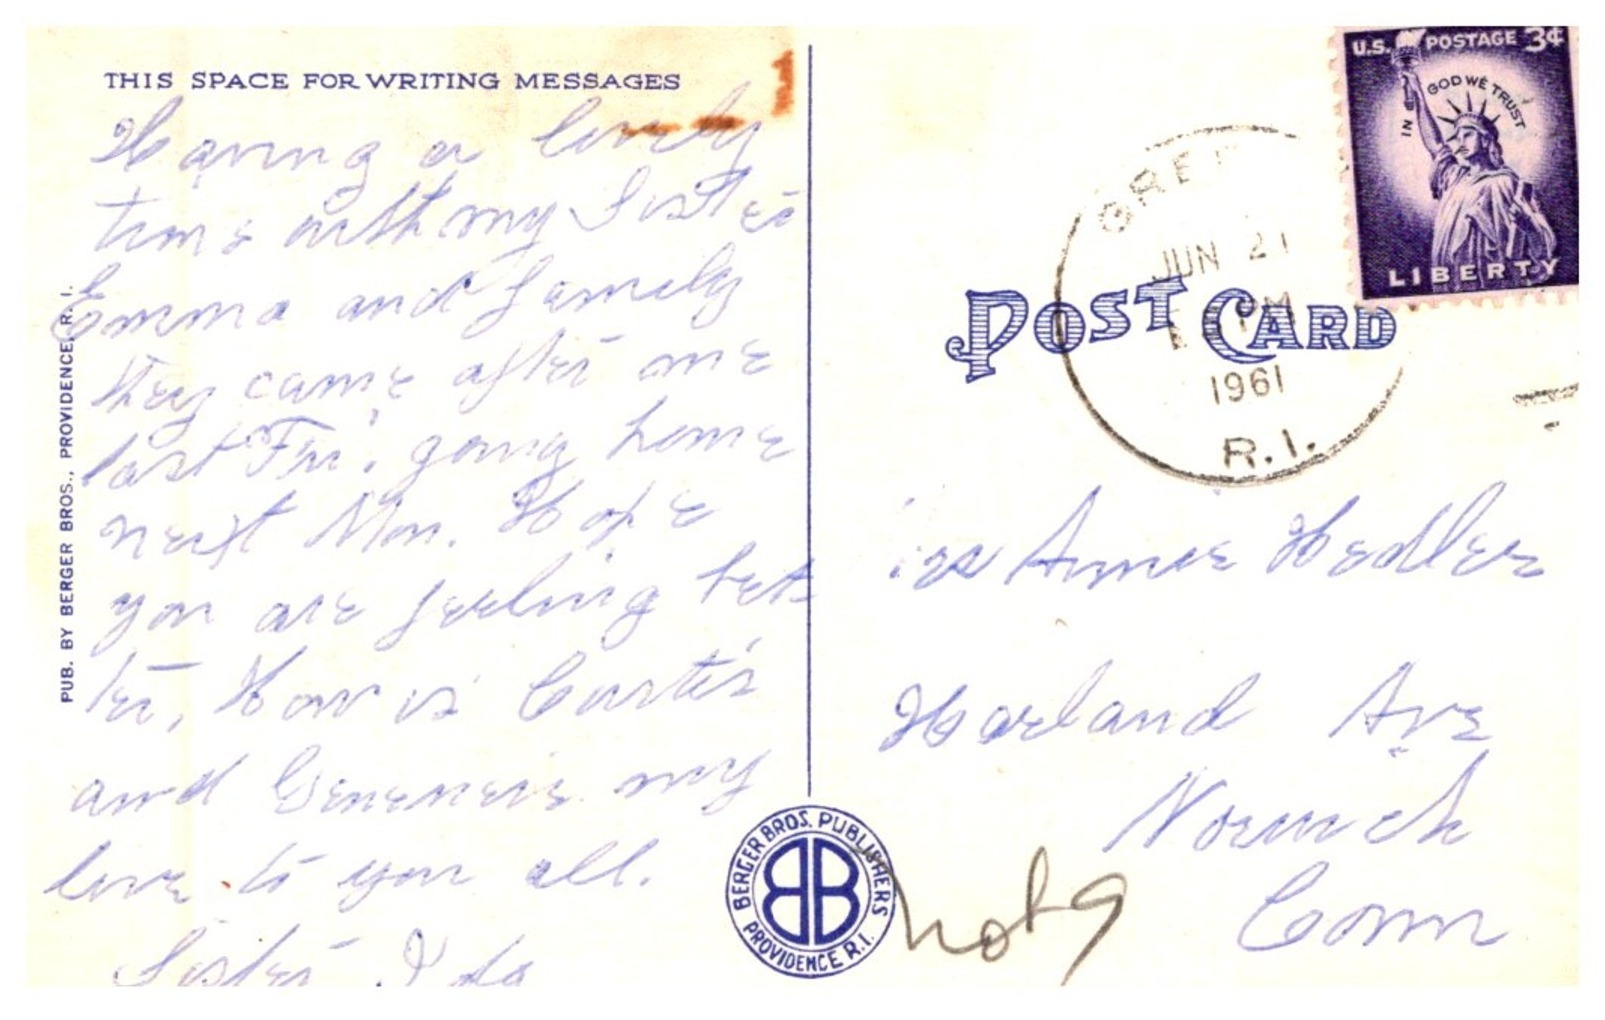 THIS SPACE FOR WRITING MESSAGES
Having a lovely
time with my Sister
Emma and family
they came after me
last Fri. going home
next Mon. Hope
you are feeling bet
ter, How is Curtis
and Genevieve my
love to you all.
Sister Ida
PUB. BY BERGER BROS., PROVIDENCE, R. I.
BERGER BROS. PUBLISHERS
PROVIDENCE R.I.
BB
U.S. POSTAGE 3¢
IN GOD WE TRUST
LIBERTY
GREE
JUN 21
PM
1961
R.I.
POST CARD
Annie Hedler
Harland Ave
Norwich
Conn